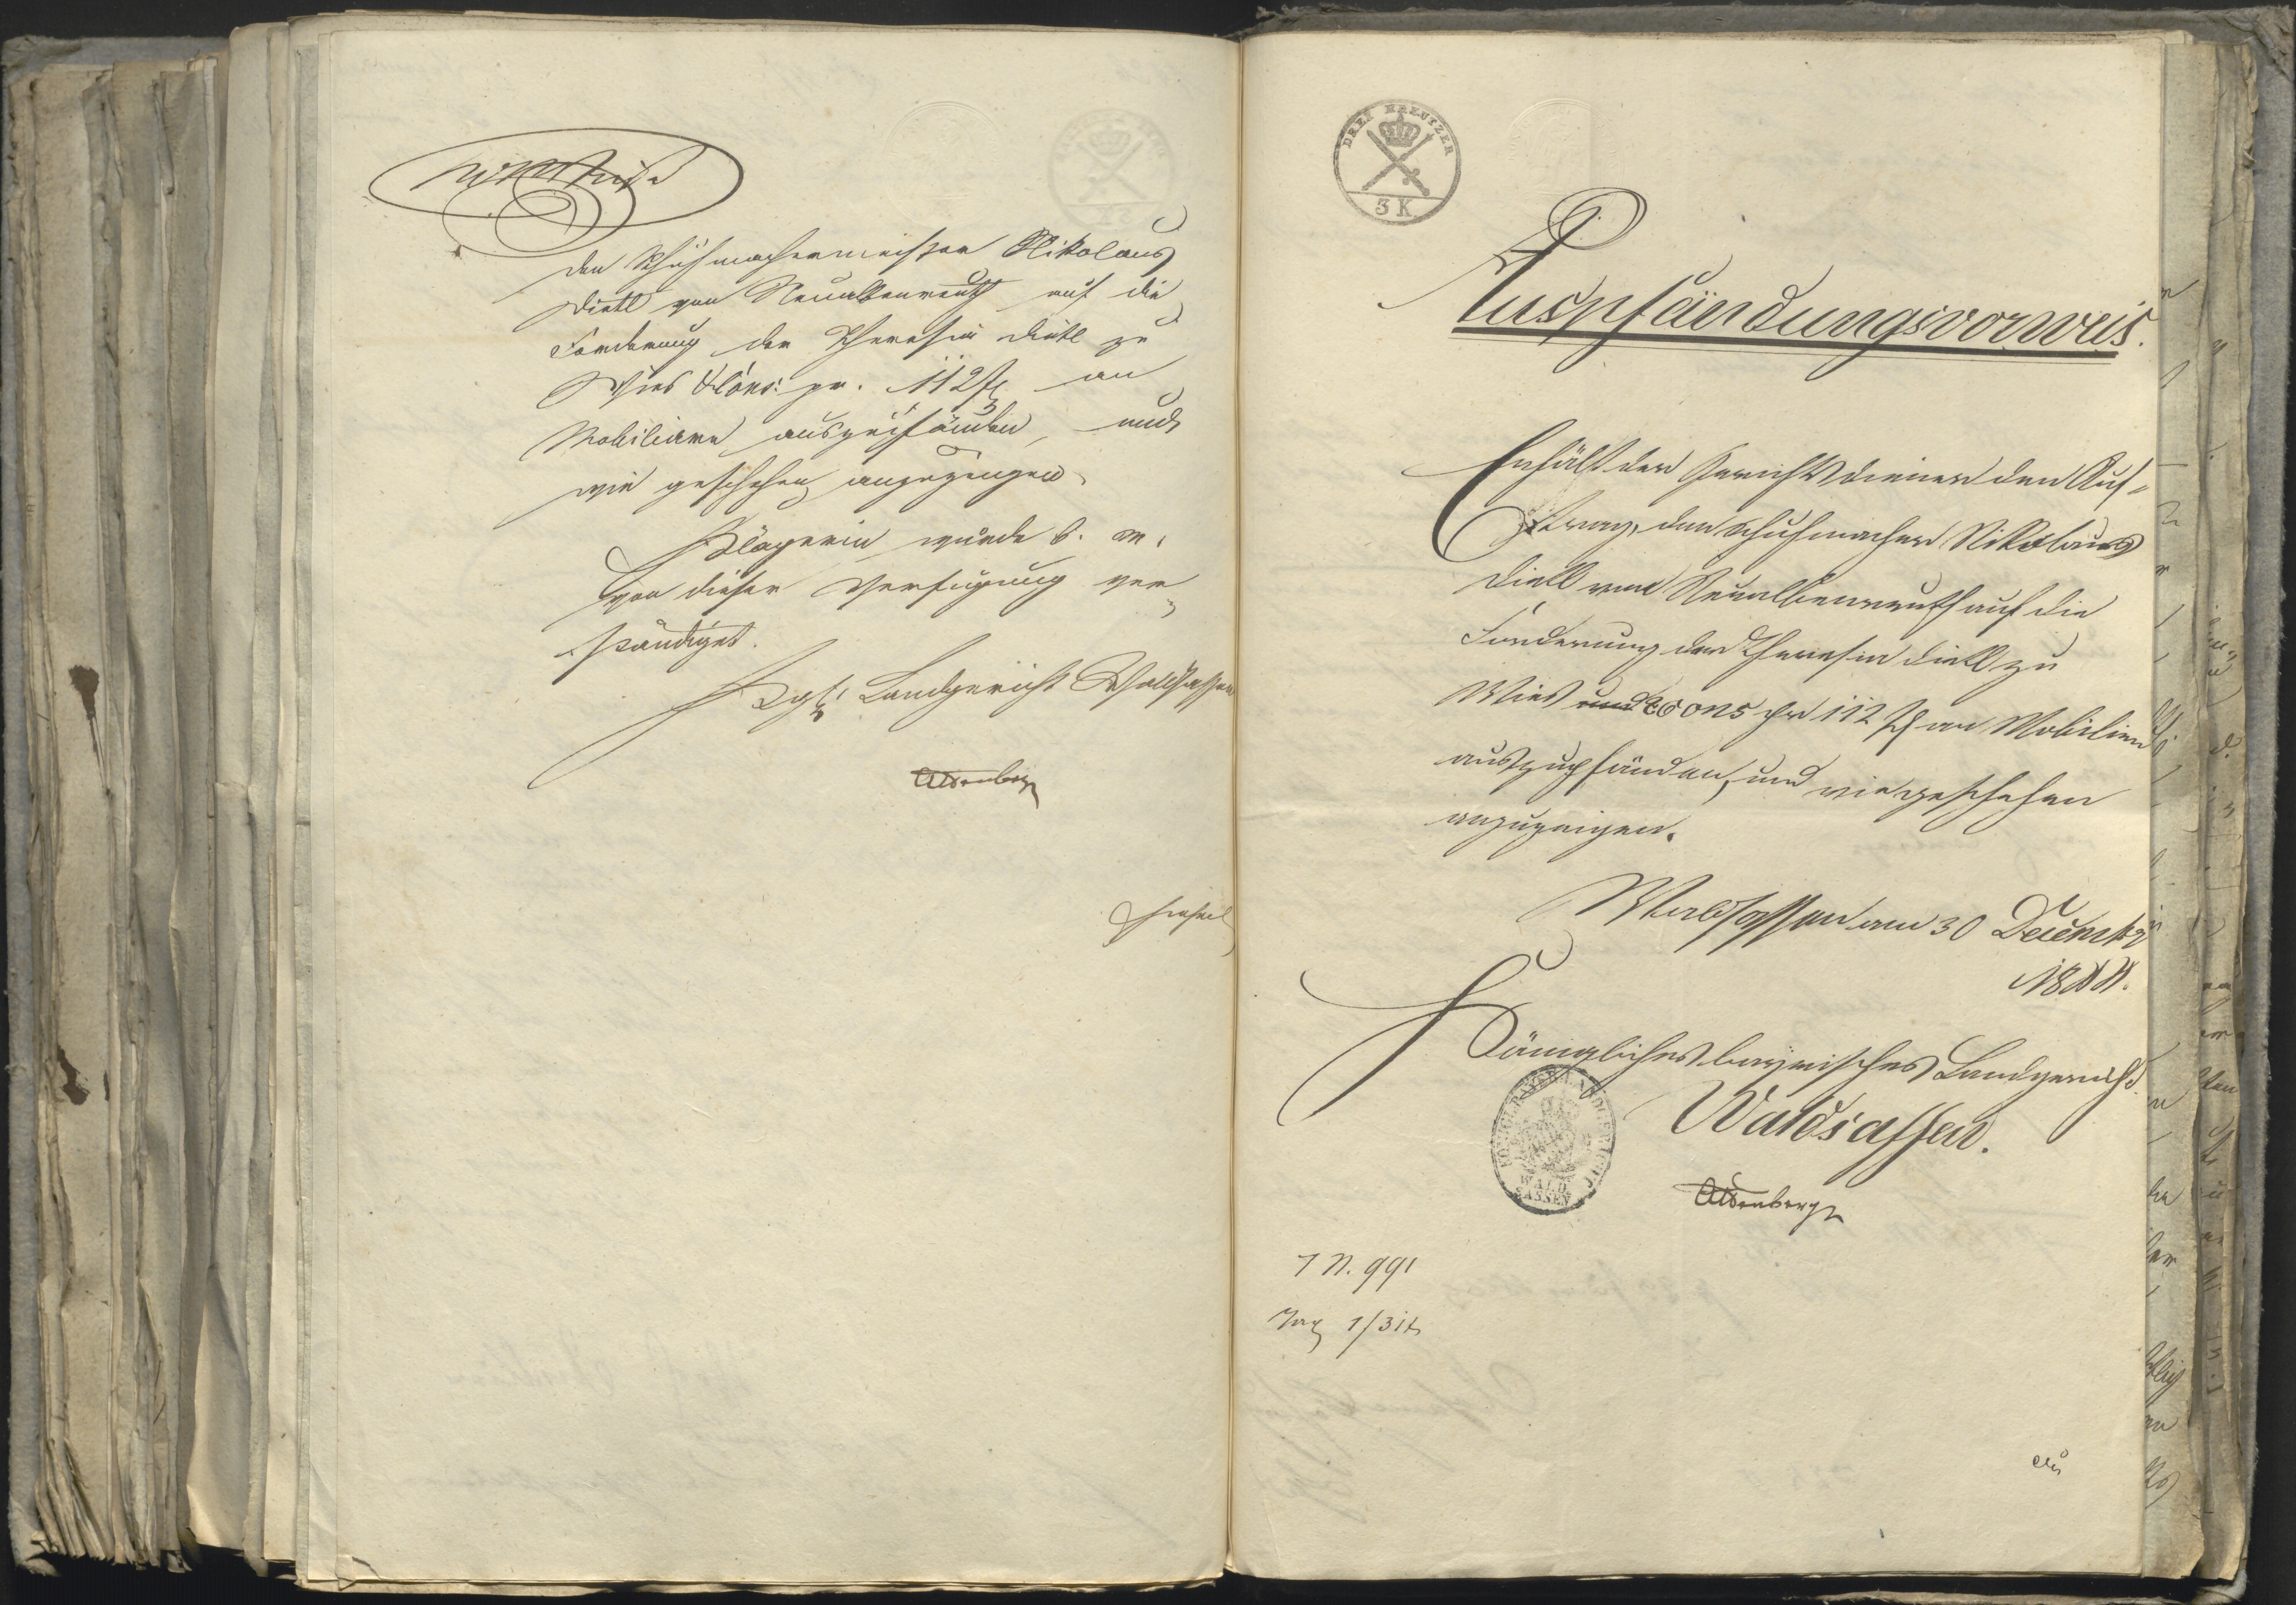 den Schuhmachermeister Nikolaus
Dietl von Neualbenreuth auf die
Forderung der Theresia Dietl zu
Wies & Cons: pr. 112 f an
Mobilien auszupfänden, und
wie geschehen anzuzeigen.
Klägerin wurde b. m.
von dieser Verfügung ver
ständiget.
Kgl. Landgericht Waldsassen
DREI KREUTZER
3 K
Auspfändungsvorweis.
Erhält der Gerichtsdiener den Auf-
trag, den Schuhmacher Nikolaus
Dietl von Neualbenreuth auf die
Forderung der Theresia Dietl zu
Wies und Cons pr 112 f an Mobilien
auszupfänden, und wie geschehen
anzuzeigen.
Waldsassen am 30 Decembr
1844.
Königliches bayerisches Landgericht
Waldsassen.
KÖNIGL. BAYER. LANDGERICHT
WALD
SASSEN
J N. 991